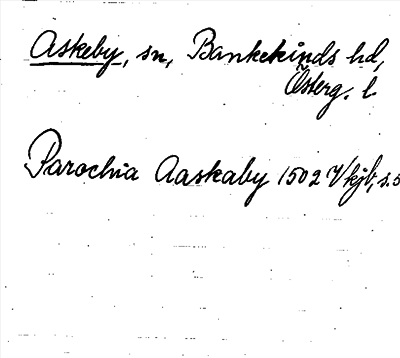 Askeby, sn, Bankekinds hd,
Österg. l.
Parochia Aaskaby 1502 Vkjb, s.5